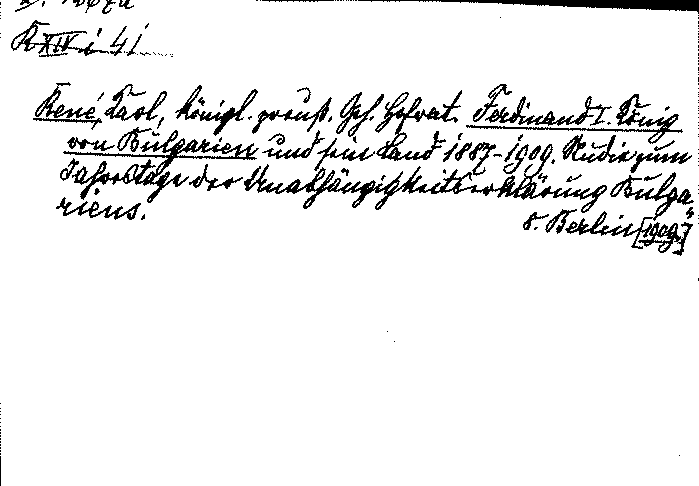 K XIV i 41
René, Karl, Königl. preuß. Geh. Hofrat. Ferdinand I. König
von Bulgarien und sein Land 1887-1909. Studie zum
Jahrestage der Unabhängigkeitserklärung Bulga-
riens.
8. Berlin [1909.]